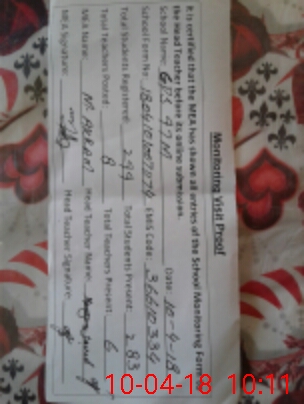 Monitoring Visit Proof
It is certified that the MEA has shown all entries of the School Monitoring Form to
the Head Teacher before its online submission.
School Name: GPS 97M Date 10-4-18
School Form No: EMIS Code: 36610334
Total Students Registered: 299 Total Students Present: 283
Total Teachers Posted: 8 Total Teachers Present: 6
MEA Name: M. AKRAM Head Teacher Name:
MEA Signature: Head Teacher Signature:
10-04-18 10:11